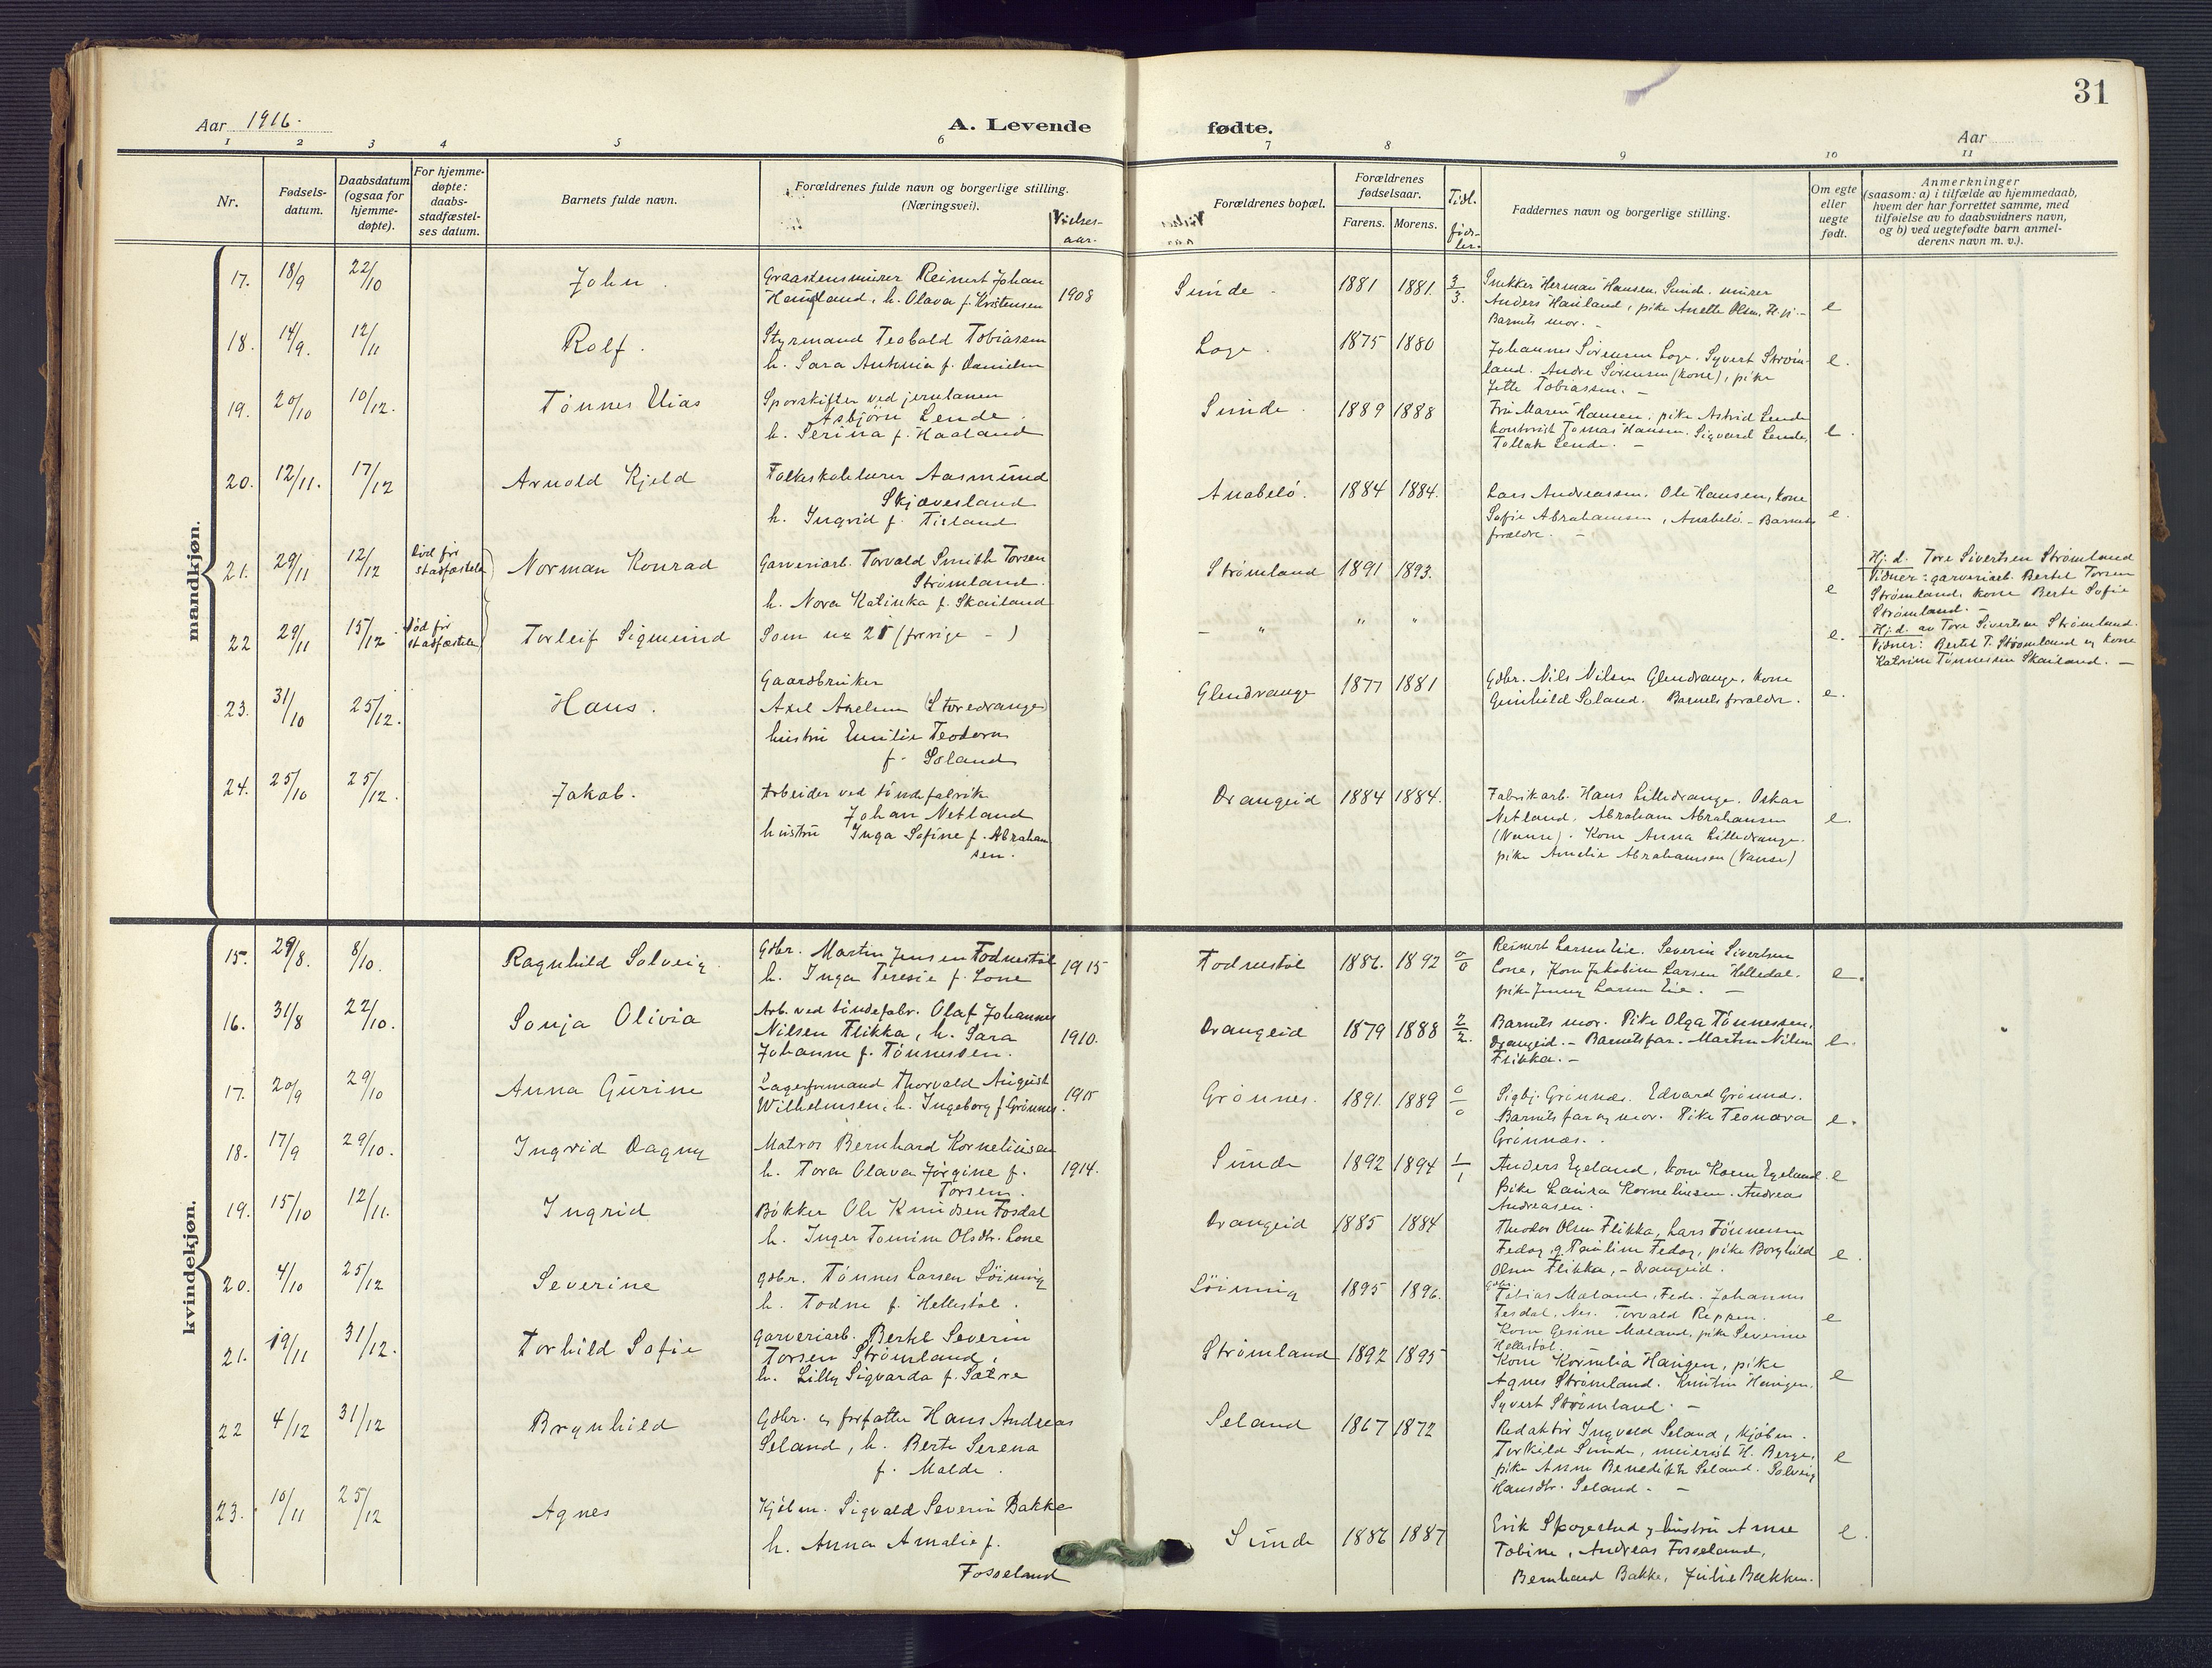 31
Aar 1916.
A. Levende fødte.
Aar
1 2 3 4 5 6 7 8 9 10 11
Nr.
Fødsels-
datum.
Daabsdatum
(ogsaa for
hjemme-
døpte).
For hjemme-
døpte:
daabs-
stadfæstel-
ses datum.
Barnets fulde navn.
Forældrenes fulde navn og borgerlige stilling.
(Næringsvei).
Vielses-
aar.
Forældrenes bopæl.
Forældrenes
fødselsaar.
Farens. Morens.
Tidl.
føds-
ler.
Faddernes navn og borgerlige stilling.
Om egte
eller
uegte
født.
Anmerkninger
(saasom: a) i tilfælde av hjemmedaab,
hvem der har forrettet samme, med
tilføielse av to daabsvidners navn,
og b) ved uegtefødte barn anmel-
derens navn m. v.).
mandkjøn.
17. 18/9 22/10 John. Graastensmurer Reinert Johan
Hauland, h. Olava f. Kristensen 1908 Sunde. 1881 1881. 3/3. Snekker Herman Hansen, Sunde. murer
Anders Hauland, pike Anette Olsen, H.
Barnets mor. - e
18. 14/9. 12/11 Rolf. Styrmand Teobald Tobiassen
h. Sara Antonia f. Danielsen Loge. 1875 1880 Johannes Sørensen Loge. Syvert Strøm-
land. Andre Sørensen (kone), pike
Jette Tobiassen. - e.
19. 20/10 10/12. Tønnes Elias Sporskifter ved jernbanen
Asbjørn Lende.
h. Serina f. Haaland Sunde. 1889 1888 Fru Maren Hansen, pike Astrid Lende
kontorist Tomas Hansen. Sigvard Lende,
Tollak Lende. - e.
20. 12/11. 17/12 Arnold Kjeld Folkeskolelærer Aasmund
Skjæveland
h. Ingrid f. Tisland Anabelø. 1884 1884. Lars Andreassen. Ole Hansen, kone
Sofie Abrahamsen, Anabelø - Barnets
forældre. - e.
21. 29/11 12/12 Død før
stadfæstelse Norman Konrad Garveriarb. Torvald Smith Torsen
Strømland.
h. Nora Katinka f. Skailand Strømland 1891 1893. e Hj. d. Tore Sivertsen Strømland
Vidner: garveriarb. Bertel Torsen
Strømland, kone Berte Sofie
Strømland. -
22 29/11 15/12. Død før
stadfæstelse Torleif Sigmund Som nr 21 (forrige - ) - " " " e. Hj. d. av Tore Sivertsen Strømland.
Vidner: Bertel T. Strømland og kone
Katrine Tønnesen Skailand. -
23. 31/10 25/12. Hans. Gaardbruker
Axel Axelsen (Storedrange)
hustru Emilie Teodora
f. Soland Glendrange 1877 1881 Gdbr. Nils Nilsen Glendrange, kone
Gunhild Soland. Barnets forældre. e.
24. 25/10 25/12. Jakob. Arbeider ved tøndefabrik
Johan Netland
hustru Inga Sofine f. Abraham
sen. Drangeid 1884 1884. Fabrikarb. Hans Lilledrange. Oskar
Netland, Abraham Abrahamsen
(Vanse). Kone Anna Lilledrange.
pike Amelie Abrahamsen (Vanse) e.
kvindekjøn.
15. 29/8. 8/10. Ragnhild Solveig. Gdbr. Martin Jensen Todnestøl
h. Inga Teresie f. Lone 1915 Todnestøl 1886. 1892 0/0 Reinert Larsen Eie. Severin Sivertsen
Lone, Kone Jakobine Larsen Helledal.
pike Jenny Larsen Eie. - e.
16. 31/8 22/10. Sonja Olivia Arb. ved tøndefabr. Olaf Johannes
Nilsen Flikka, h. Sara
Johanne f. Tønnessen. 1910. Drangeid 1879 1888 2/2. Barnets mor. Pike Olga Tønnessen,
Drangeid. - Barnets far. Martin Nilsen
Flikka. - e.
17. 20/9 29/10 Anna Gurine Lagerformand Thorvald August
Wilhelmsen, h. Ingeborg f. Grønnes. 1915 Grønnes. 1891. 1889 0/0 Sigbj. Grønnæs. Edvard Grønnæs.
Barnets far og mor. Pike Teonæva
Grønnæs. e.
18. 17/9 29/10. Ingrid Dagny Matros Bernhard Korneliusen
h. Tora Olava Jørgine f.
Torsen. 1914. Sunde 1892 1894 1/1 Anders Egeland, kone Karen Egeland.
Pike Laura Korneliusen. Andreas
Andreasen. e
19. 15/10 12/11. Ingrid Bøkker Ole Knudsen Fosdal
h. Inger Tomine Olsdtr. Lone Drangeid 1885 1884 Theodor Olsen Flikka, Lars Tønnessen
Fedog, g. Pauline Fedog, pike Borghild
Olsen Flikka, - Drangeid. e.
20. 4/10 25/12 Severine gdbr. Tønnes Larsen Løining
h. Todne f. Hellestøl. Løining 1895 1896. Gdbr.
Tobias Moland, Feda. Johannes
Tesdal, Nes. Torvald Reppen.
Kone Gesine Mæland, pike Severine
Hellestøl. e
21. 19/11 31/12. Torhild Sofie garveriarb. Bertel Severin
Torsen Strømland,
h. Lilly Sigvarda f. Sætre Strømland 1892 1895 Kone Kornelia Haugen, pike
Agnes Strømland. Knut Haugen.
Syvert Strømland. - e
22 4/12 31/12 Brynhild Gdbr. og forfatter Hans Andreas
Seland, h. Berte Serena
f. Molde. Seland 1867 1872 Redaktør Ingvald Seland, Kjøben.
Torkild Sunde, meierist H. Berge,
pike Anne Benedikte Seland. Solveig
Hansdtr. Seland. - e
23. 10/11 25/12 Agnes Kjølm. Sigvald Severin Bakke
h. Anna Amalie f.
Fosseland Sunde 1886 1887 Erik Skogestad og hustru Anne
Tobine, Andreas Fosseland,
Bernhard Bakke, Julie Bakken. e.